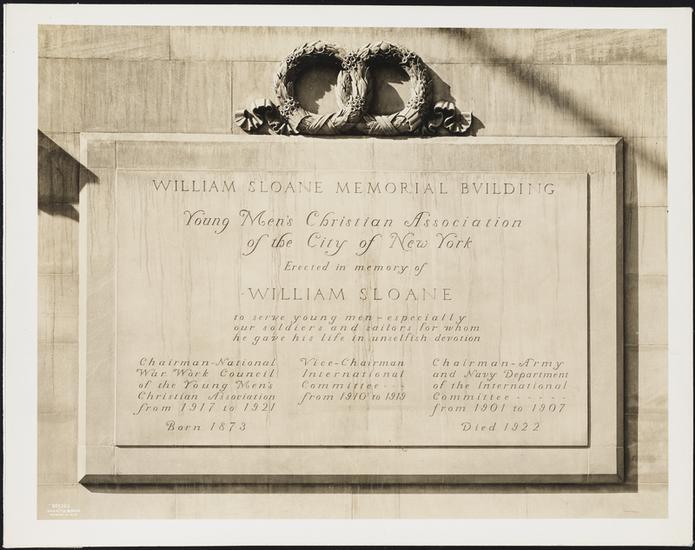 WILLIAM SLOANE MEMORIAL BVILDING
Young Men's Christian Association
of the City of New York
Erected in memory of
WILLIAM SLOANE
to serve young men - especially
our soldiers and sailors for whom
he gave his life in unselfish devotion
Chairman-National
War Work Council
of the Young Men's
Christian Association
from 1917 to 1921
Vice-Chairman
International
Committee - - -
from 1910 to 1919
Chairman-Army
and Navy Department
of the International
Committee - - - - -
from 1901 to 1907
Born 1873
Died 1922